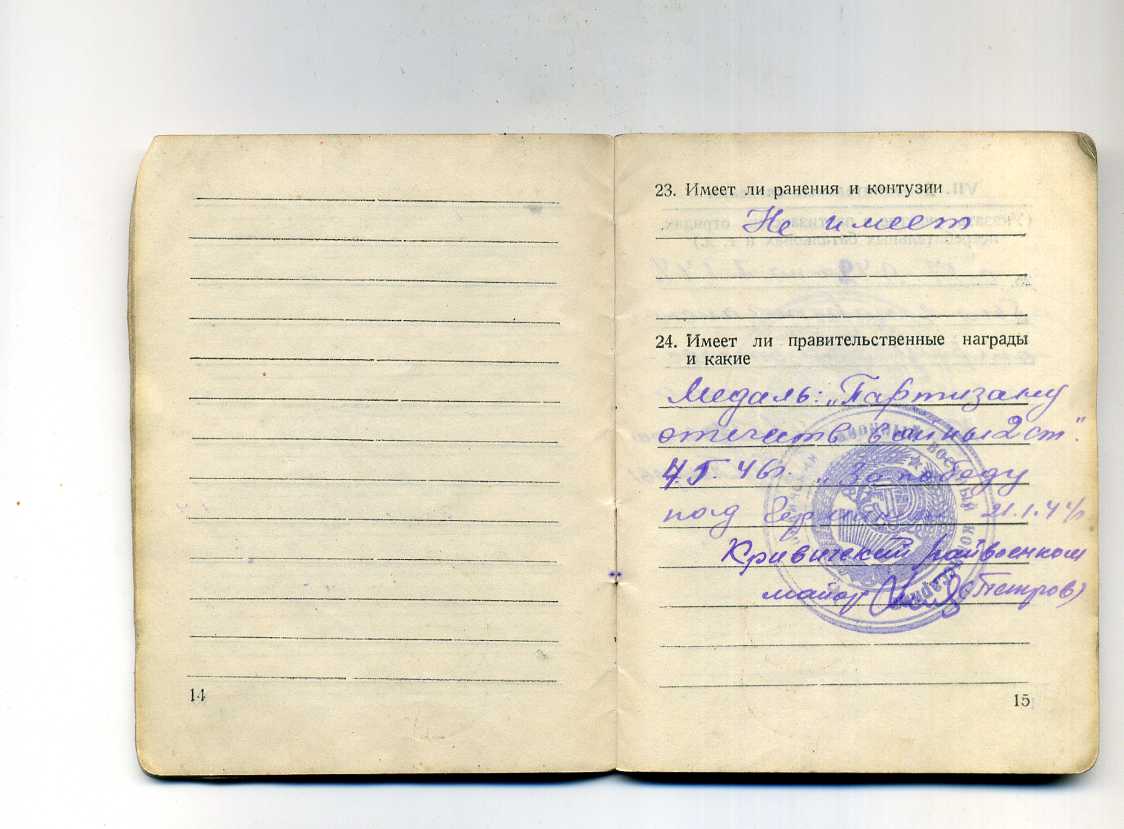 23. Имеет ли ранения и контузии
Не имеет
24. Имеет ли правительственные награды
и какие
Медаль: „Партизану
отечеств. войны 2 ст".
46г. „За победу
над Германией
Кривичский райвоенком
майор (Петров)
14
15